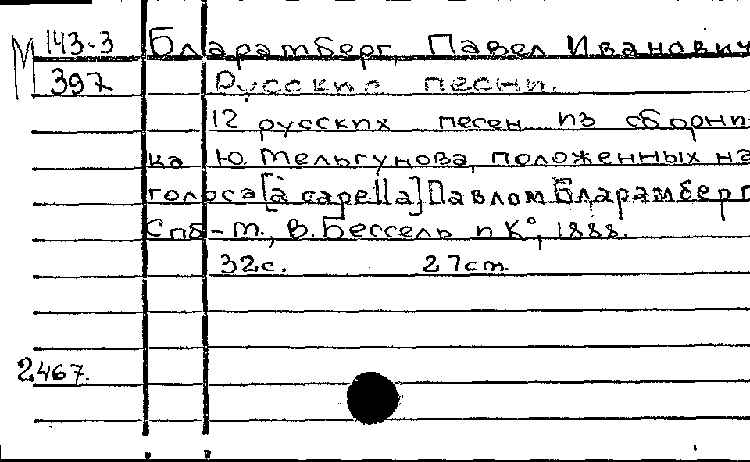 М 143-3 Бларамберг, Павел Иванович
397 Русские песни.
12 русских песен из сборни-
ка Ю. Мельгунова, положенных на
голоса [à capella] Павлом Бларамберг
Спб-М., В. Бессель и К°, 1888.
32с. 27см.
2467.